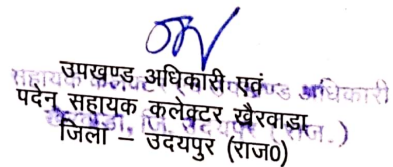 उपखण्ड अधिकारी एवं
पदेन सहायक कलेक्टर खैरवाड़ा
जिला – उदयपुर (राज0)